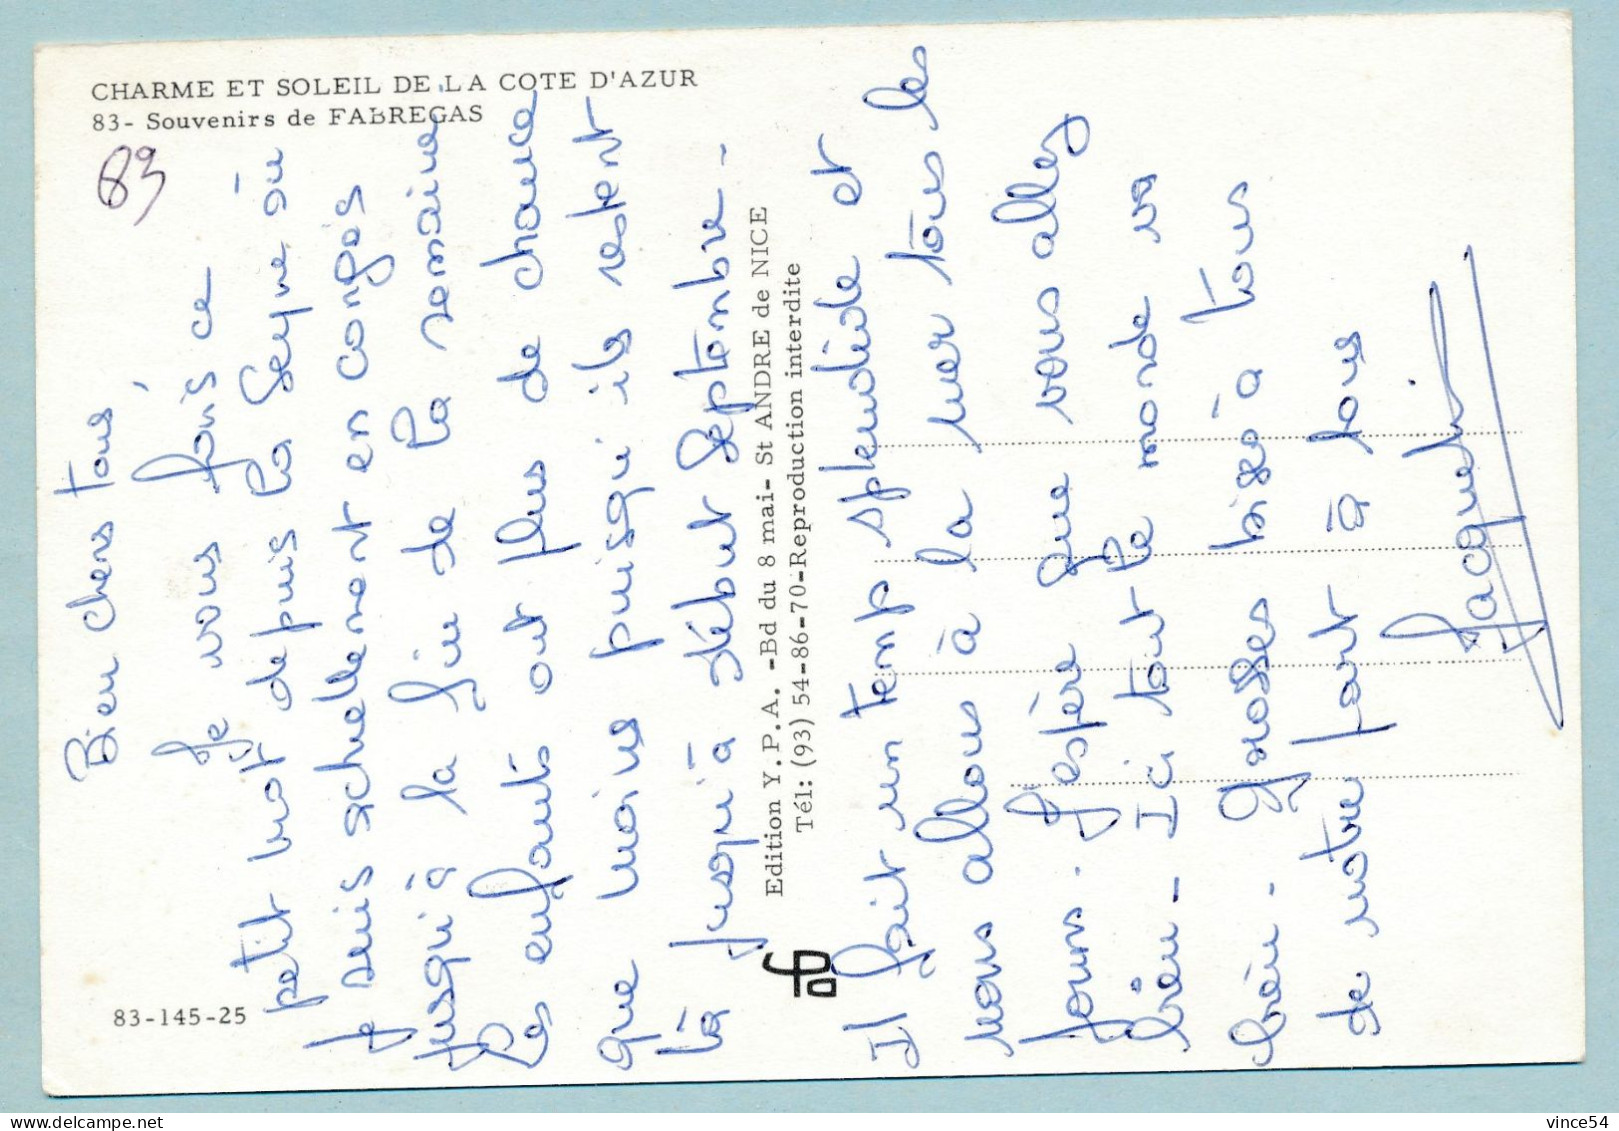 CHARME ET SOLEIL DE LA COTE D'AZUR
83- Souvenirs de FABREGAS
83
Bien chers tous
Je vous fais ce
petit mot depuis la Seyne où
je suis actuellement en congés
jusqu'à la fin de la semaine
Les enfants ont plus de chance
que moins puisqu'ils restent
là jusqu'à début septembre -
Il fait un temp splendide et
nous allons à la mer tous les
jours. J'espère que vous allez
bien - Ici tout le monde va
bien - grosses bises à tous
de notre part à tous
Jacqueline
Edition Y.P.A. -Bd du 8 mai- St ANDRE de NICE
Tél: (93) 54-86-70-Reproduction interdite
83-145-25
delcampe.net
vince54